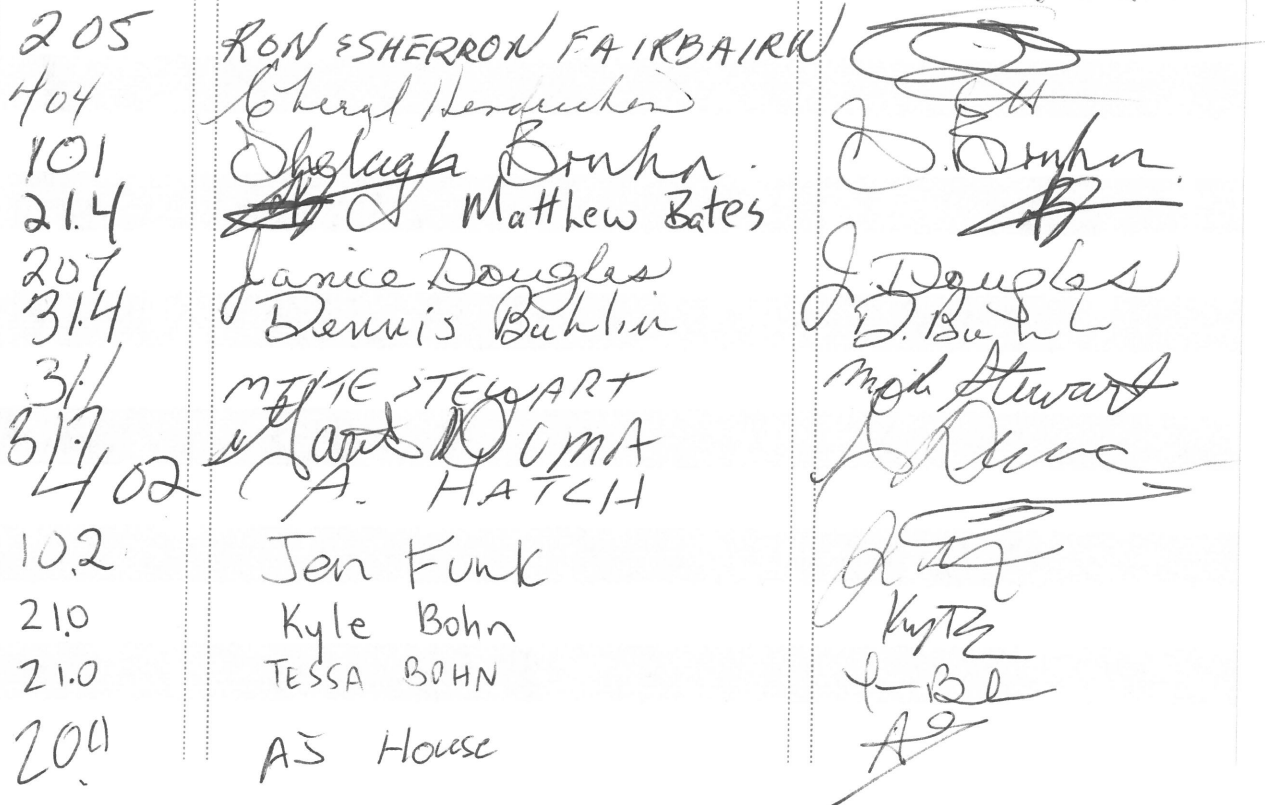 205 RON & SHERRON FAIRBAIRN
404 Cheryl
101 Shelagh Bruhn. S. Bruhn.
214 Matthew Bates
207 Janice Douglas J. Douglas
314 Dennis Buhlin D. Buhl
311 MIKE STEWART Mike Stewart
317 DUMA
402 A. HATCH
102 Jen Funk
210 Kyle Bohn
210 TESSA BOHN
AJ House